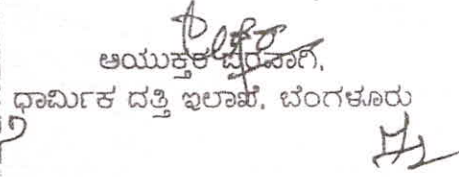 ಆಯುಕ್ತರ ಪರವಾಗಿ,
ಧಾರ್ಮಿಕ ದತ್ತಿ ಇಲಾಖೆ, ಬೆಂಗಳೂರು